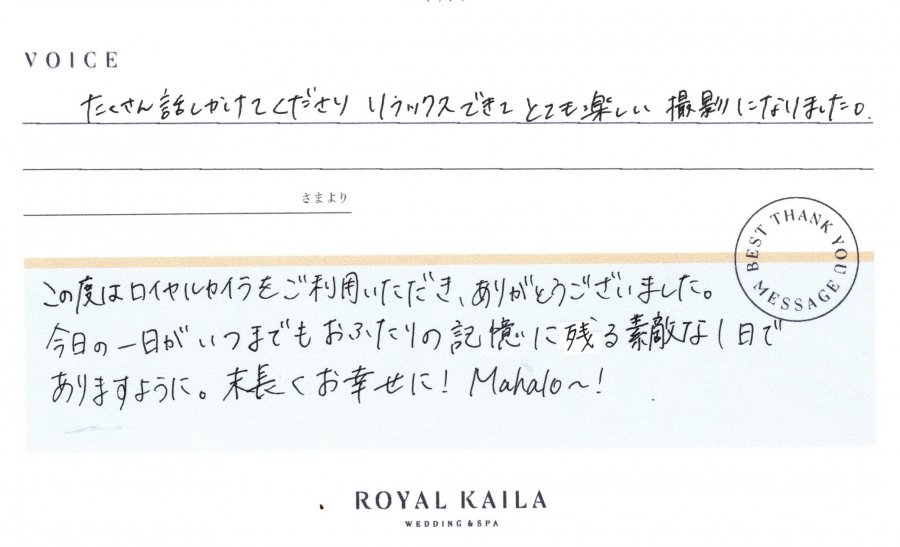 VOICE
たくさん話しかけてくださり リラックスできて とても楽しい 撮影になりました。
さまより
BEST THANK YOU MESSAGE
この度はロイヤルカイラをご利用いただき、ありがとうございました。
今日の一日がいつまでもおふたりの記憶に残る素敵な1日で
ありますように。末長くお幸せに! Mahalo～!
ROYAL KAILA
WEDDING & SPA